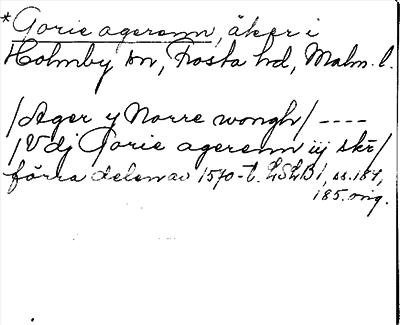 *Gorie agerenn, åker i
Holmby sn, Frosta hd, Malm. l.
/Ager y Norre wongh/ ----
/Vdj Gorie agerenn iij skr/
förra delen av 1570-t. LSLB 1, ss. 184,
185. orig.